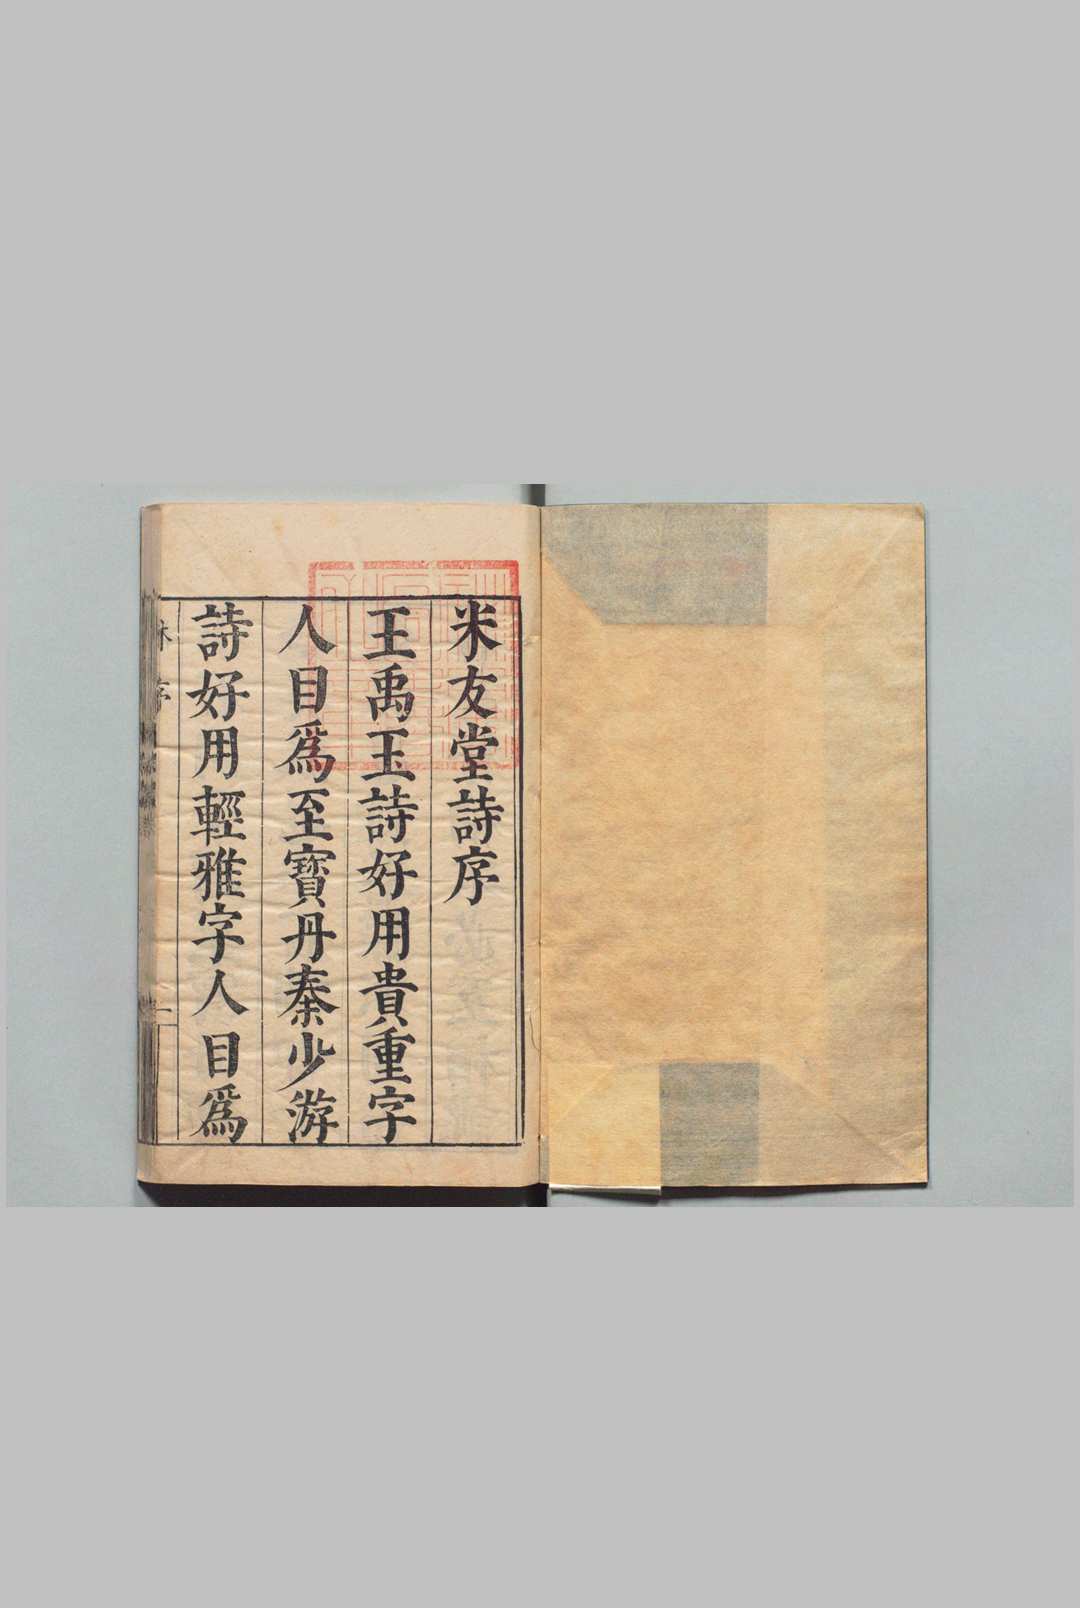 米友堂詩序
王禹玉詩好用貴重字
人目爲至寶丹秦少游
詩好用輕雅字人目爲